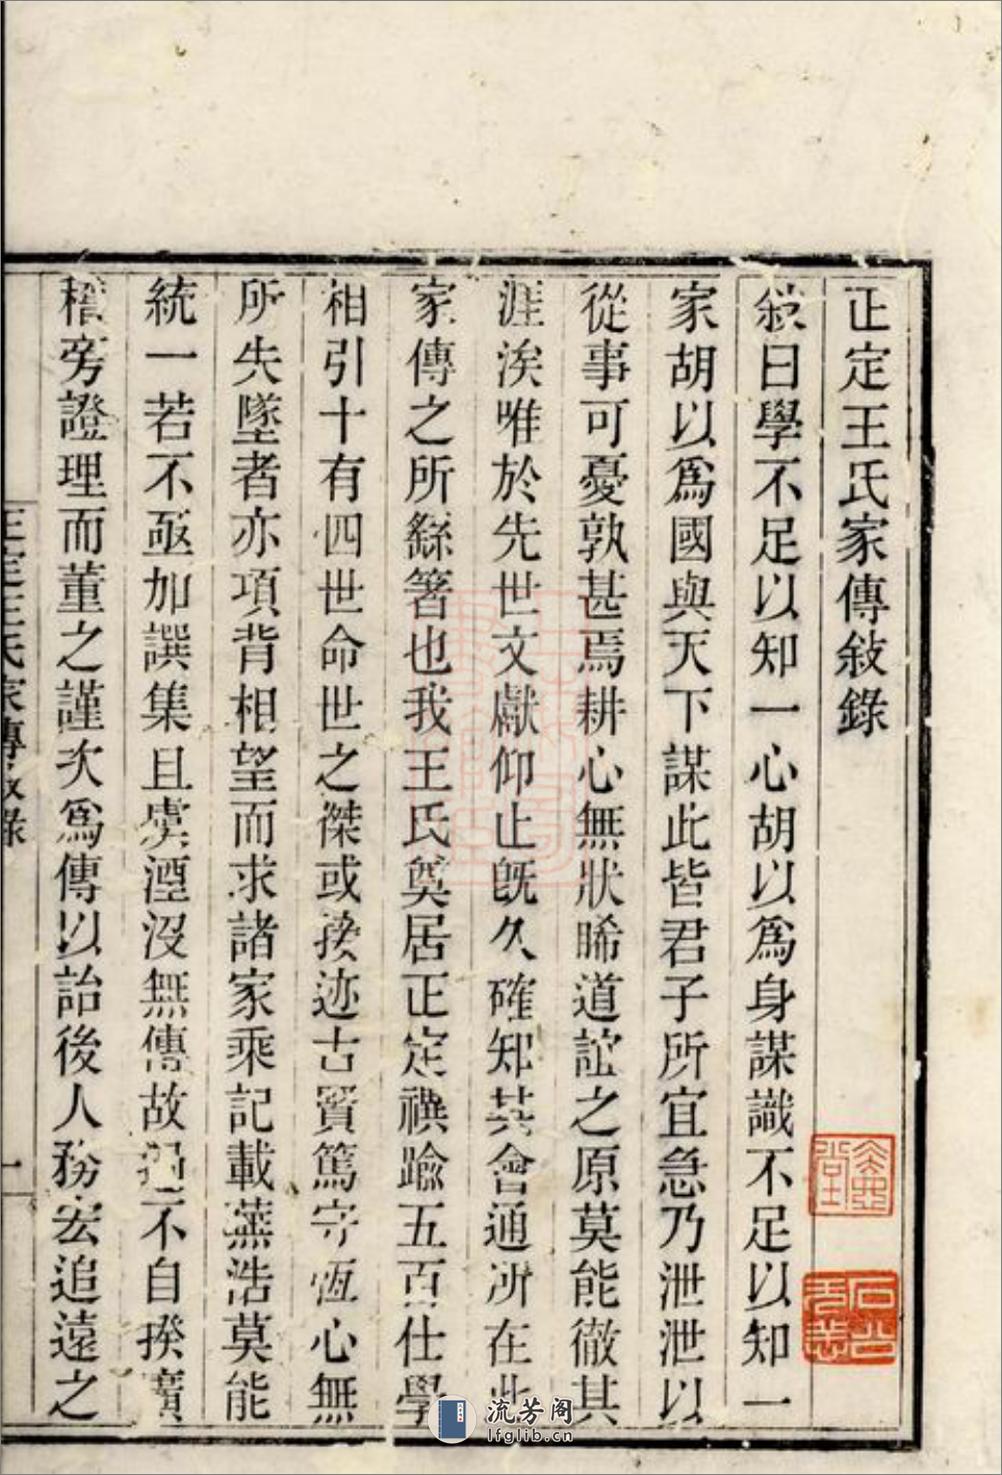 正定王氏家傳敍錄
敍曰學不足以知一心胡以爲身謀識不足以知一
家胡以爲國與天下謀此皆君子所宜急乃泄泄以
從事可憂孰甚焉耕心無狀晞道誼之原莫能徹其
涯涘唯於先世文獻仰止旣久確知其會通所在此
家傳之所繇箸也我王氏奠居正定禩踰五百仕學
相引十有四世命世之傑或接迹古賢篤守恆心無
所失墜者亦項背相望而求諸家乘記載蕪浩莫能
統一若不亟加譔集且虞湮沒無傳故不自揆廣
稽旁證理而董之謹次爲傳以詒後人務宏追遠之
正定王氏家傳敍錄
一
流芳阁
lfglib.cn